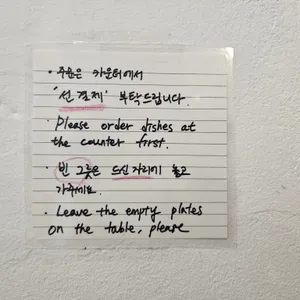 · 주문은 카운터에서
'선 결제' 부탁드립니다.
· Please order dishes at
the counter first.
· 빈 그릇은 드신 자리에 놓고
가주세요.
· Leave the empty plates
on the table, please